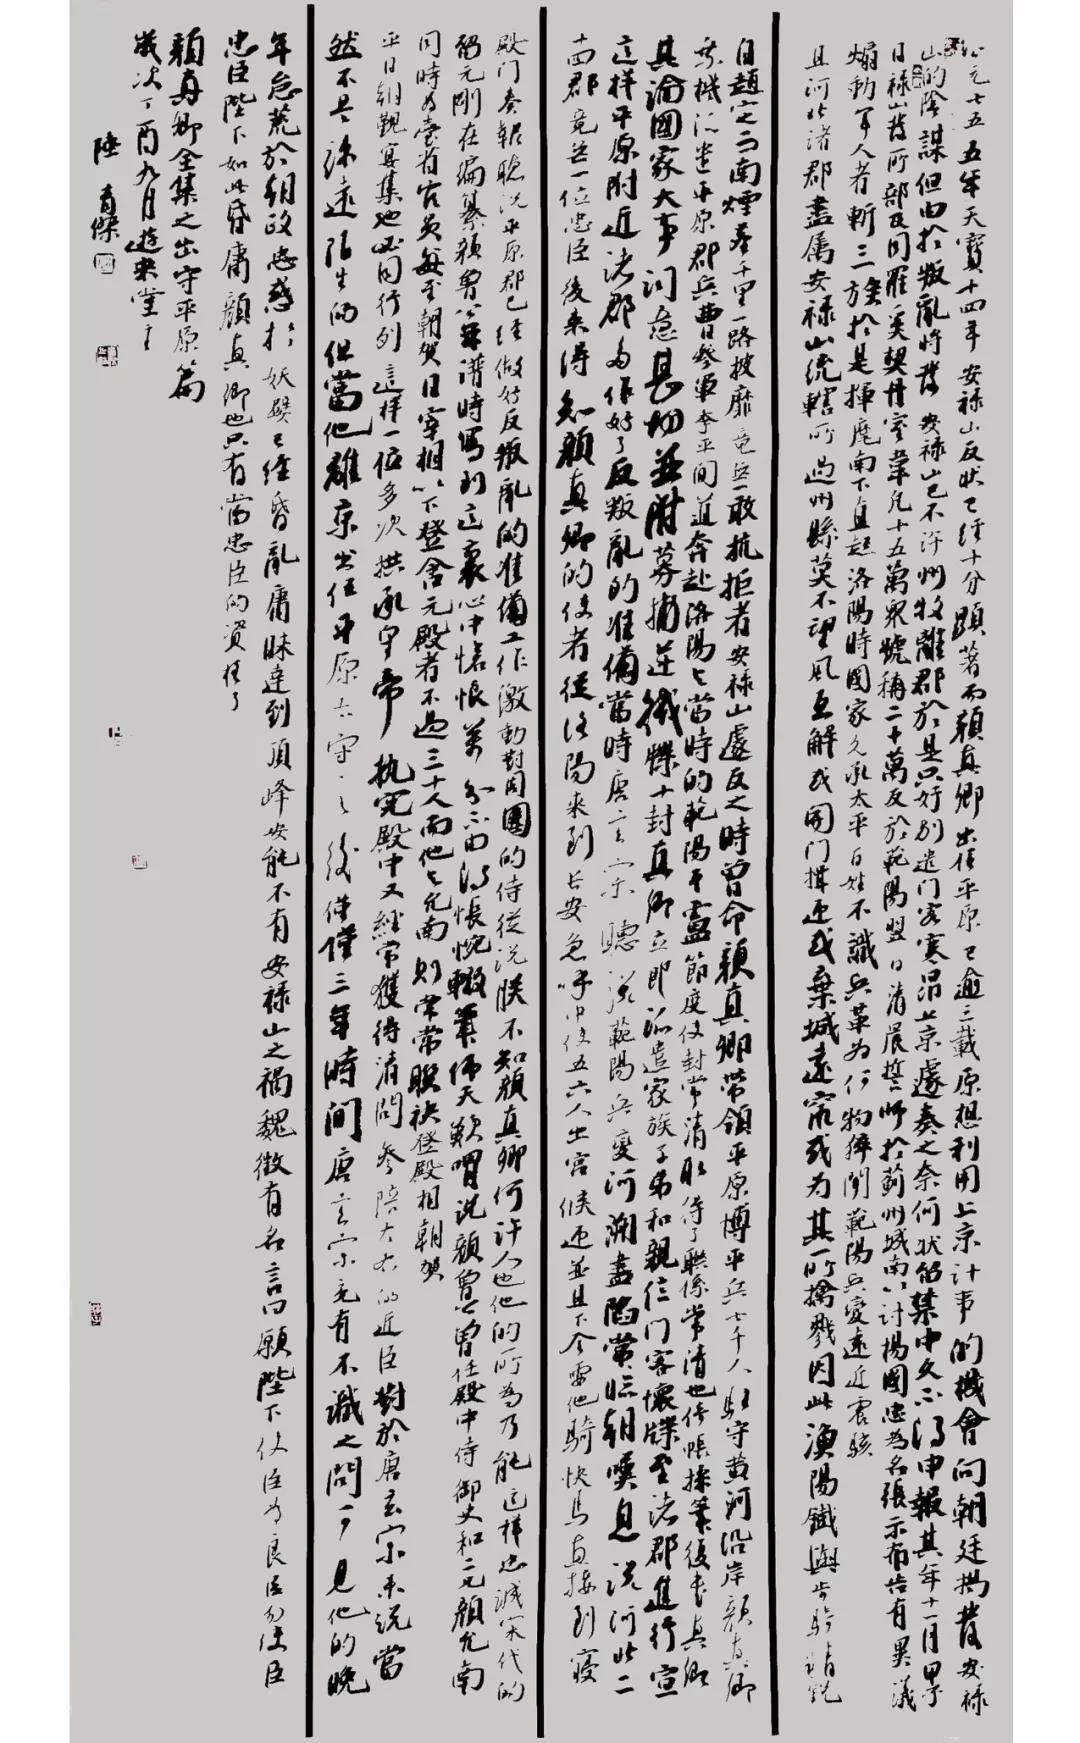 公元七五五年天寶十四年安禄山反状已經十分顕著而顔真卿出任平原已逾三載原想利用上京计事的機會向朝廷揭發安禄
山的陰謀但由於叛亂将發安禄山已不许州牧離郡於是只好别遣门客蹇昂上京遽奏之奈何状留禁中久不得申報其年十一月甲子
日禄山發所部及同羅奚契丹室韋凡十五萬衆號稱二十萬反於範陽翌日清晨誓师於薊州城南以讨楊國忠為名張示布告有異議
煽動军人者斬三族於是揮麾南下直趋洛陽時國家久承太平百姓不識兵革为何物猝闻範陽兵變遠近震駭
且河北诸郡盡属安禄山统轄所過州縣莫不望風瓦解或開门揖迎或棄城遠竄或为其所擒戮因此漁陽鐵輿步騎精鋭
自趙定而南煙塵千里一路披靡竟無敢抗拒者安禄山遽反之時曾命顔真卿带領平原博平兵七千人駐守黄河沿岸顔真卿
乘機派遣平原郡兵曹參軍李平间道奔赴洛陽与當時的範陽平盧節度使封常清取得了联係常清也借帳操筆復书真卿
其論國家大事词意甚切並附募捕逆贼牒十封真卿立即派遣家族子弟和親信门客懷牒至诸郡進行宣
这样平原附近诸郡多作好了反叛亂的准備當時唐玄宗聽说範陽兵變河朔盡陷常臨朝嘆息说河北二
十四郡竟無一位忠臣後来得知顔真卿的使者從洛陽来到长安急呼中使五六人出宫候迎並且下令要他騎快馬直接到寝
殿门奏報聽说平原郡已经做好反叛亂的准備工作激動對周圍的侍從说朕不知顔真卿何许人也他的所為乃能這样忠誠宋代的
留元剛在編纂顔鲁公年谱時写到这裏心中悵恨萬分不由得悵惋輟筆仰天歎喟说顔魯公曾任殿中侍御史和二兄顔允南
同時为臺省官员每至朝贺日宰相以下登含元殿者不過三十人而他与允南则常常聯袂登殿相朝贺
平日朝觀宴集也必同行列這样一位多次拱承皇帝执宪殿中又經常獲得清問參陪大右的近臣對於唐玄宗来说當
然不是疎遠陌生的但當他離京出任平原太守之後僅僅三年時間唐玄宗竟有不識之問可見他的晚
年怠荒於朝政忠惑於妖嬖已经昏亂庸昧達到頂峰安能不有安禄山之禍魏徵有名言曰願陛下使臣为良臣勿使臣
忠臣陛下如此昏庸顔真卿也只有當忠臣的资格了
顔真卿全集之出守平原篇
歲次丁酉九月遊来堂主
陸有傑